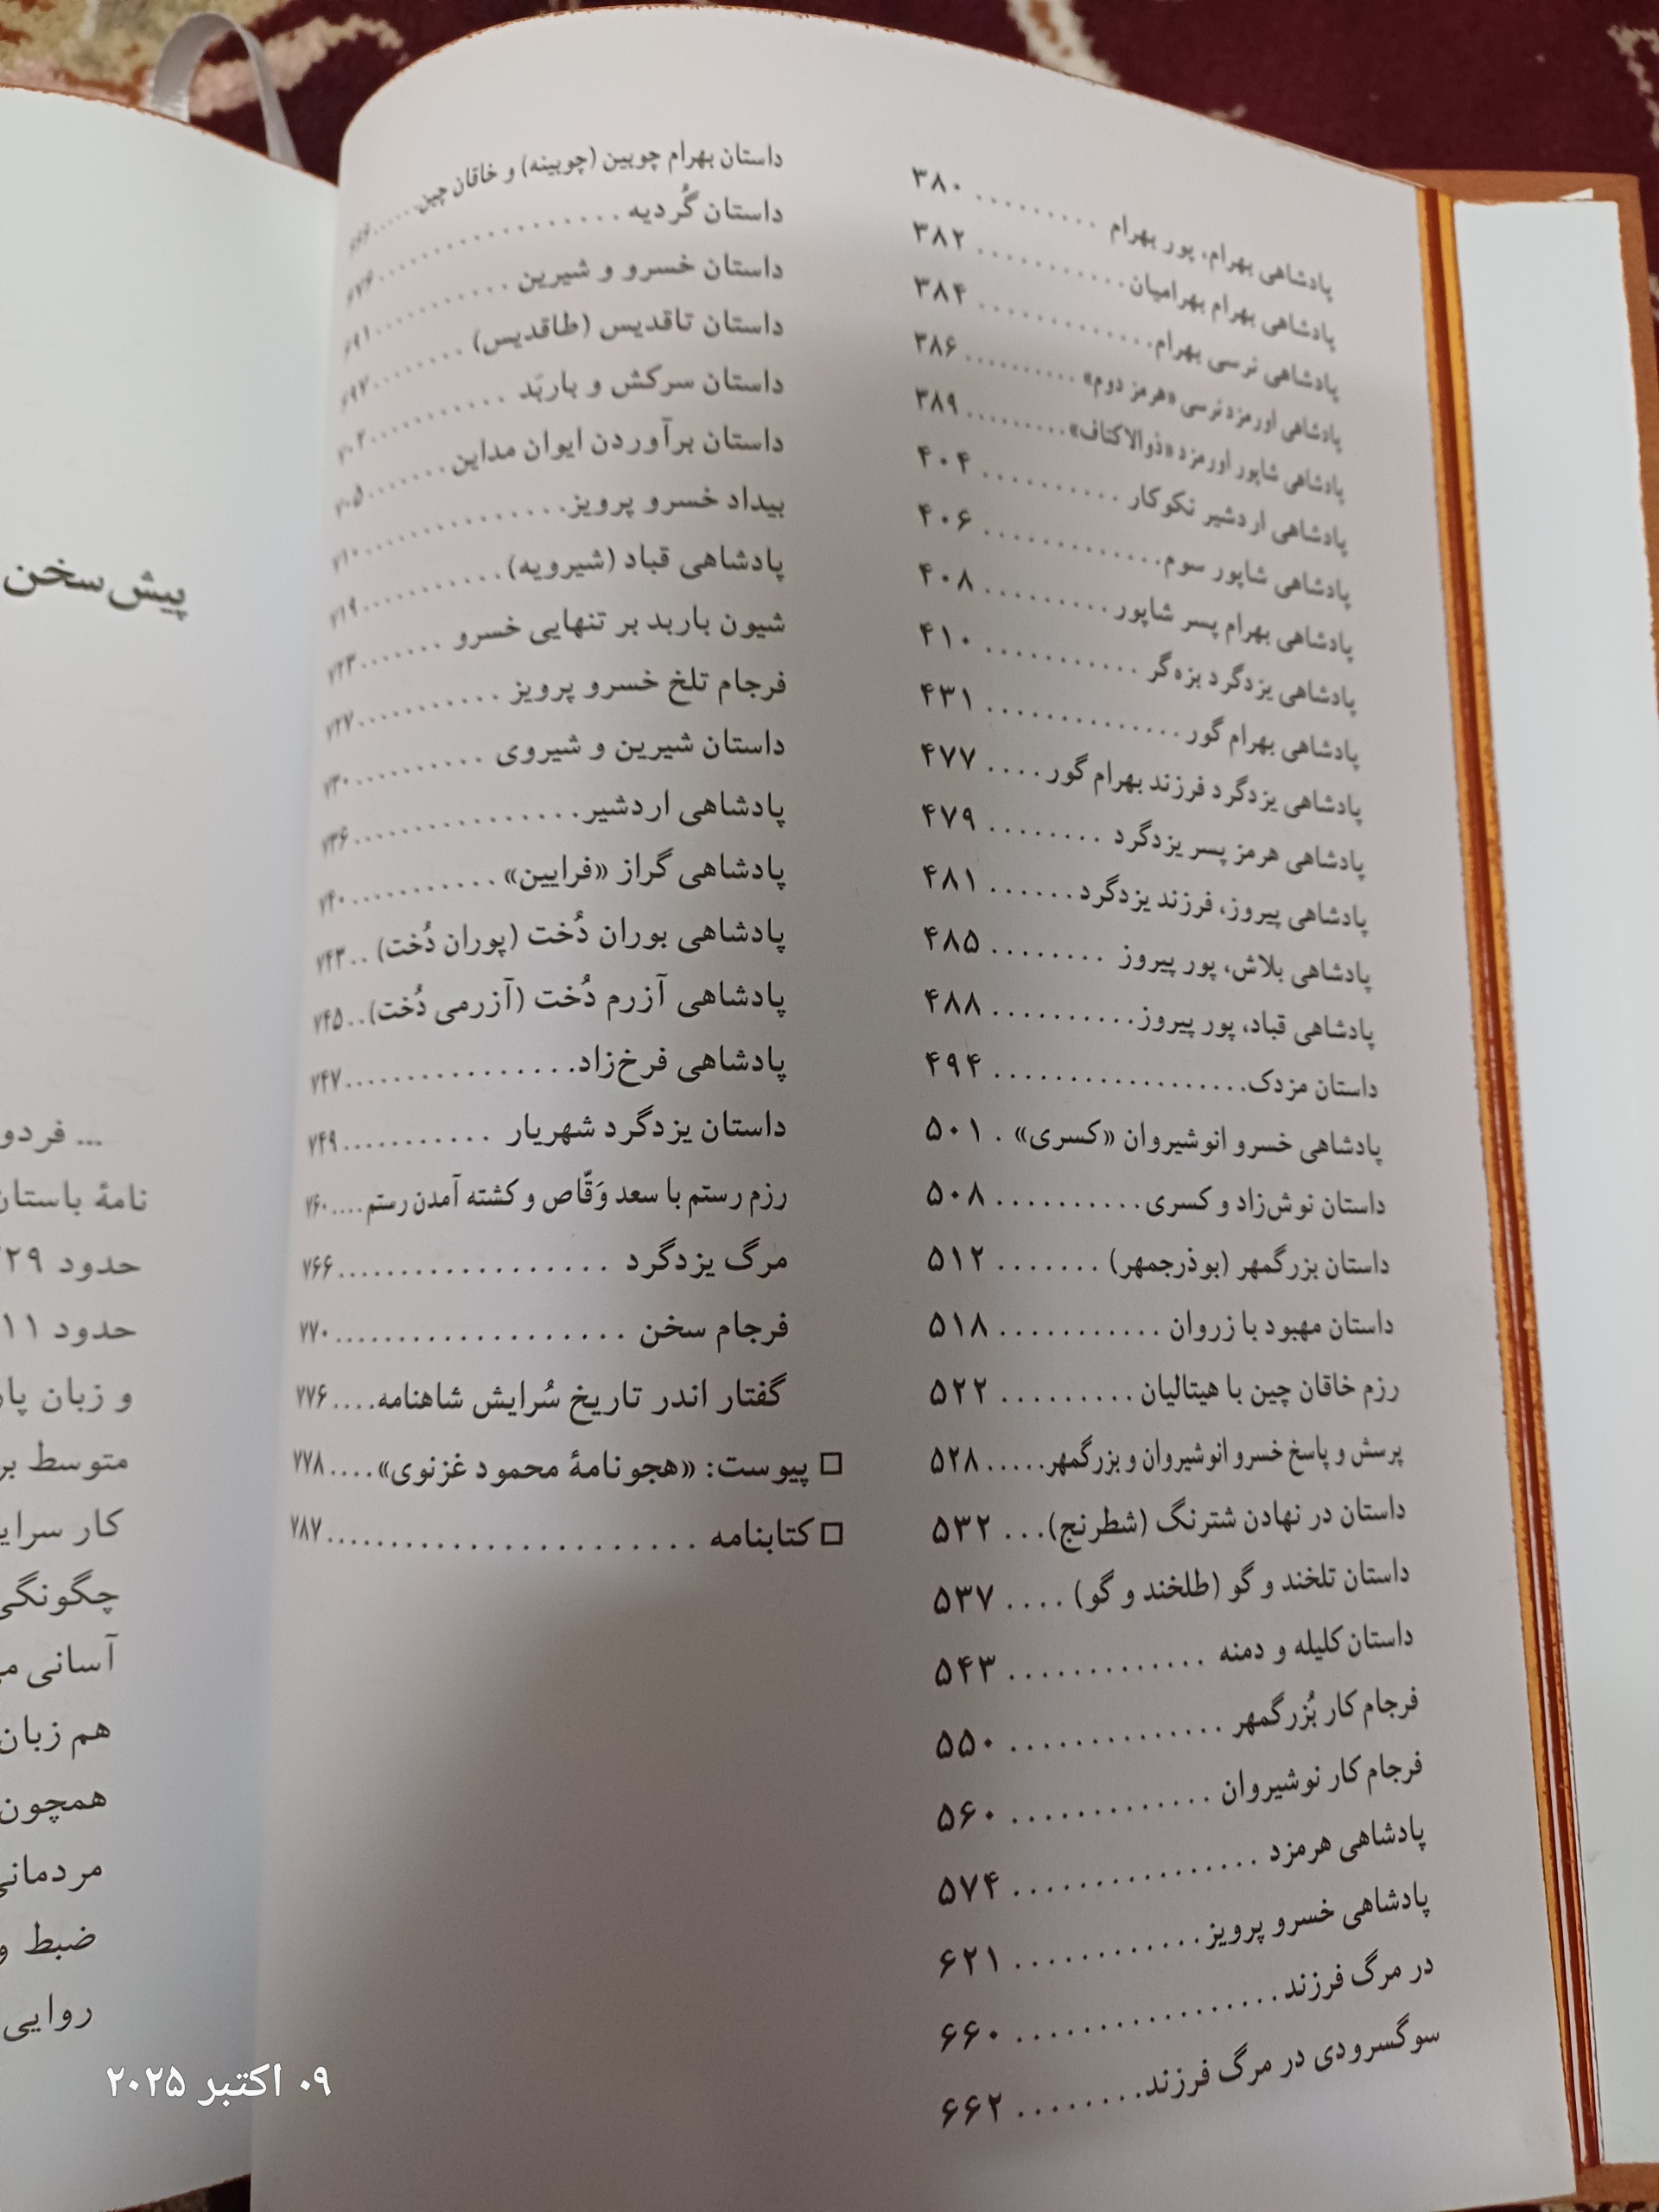 پادشاهی بهرام، پور بهرام ......... ۳۸۰
پادشاهی بهرام بهرامیان .......... ۳۸۲
پادشاهی نرسی بهرام ............ ۳۸۴
پادشاهی اورمزد نرسی «هرمز دوم» .......... ۳۸۶
پادشاهی شاپور اورمزد «ذوالاکتاف» ......... ۳۸۹
پادشاهی اردشیر نکوکار .......... ۴۰۴
پادشاهی شاپور سوم ............. ۴۰۶
پادشاهی بهرام پسر شاپور ......... ۴۰۸
پادشاهی یزدگرد بزه‌گر ........... ۴۱۰
پادشاهی بهرام گور .............. ۴۳۱
پادشاهی یزدگرد فرزند بهرام گور .... ۴۷۷
پادشاهی هرمز پسر یزدگرد ........ ۴۷۹
پادشاهی پیروز، فرزند یزدگرد ...... ۴۸۱
پادشاهی بلاش، پور پیروز ........ ۴۸۵
پادشاهی قباد، پور پیروز .......... ۴۸۸
داستان مزدک ................... ۴۹۴
پادشاهی خسرو انوشیروان «کسری» . ۵۰۱
داستان نوش‌زاد و کسری ........... ۵۰۸
داستان بزرگمهر (بوذرجمهر) ....... ۵۱۲
داستان مهبود با زروان ........... ۵۱۸
رزم خاقان چین با هیتالیان .......... ۵۲۲
پرسش و پاسخ خسرو انوشیروان و بزرگمهر ..... ۵۲۸
داستان در نهادن شترنگ (شطرنج) ... ۵۳۲
داستان تلخند و گو (طلخند و گو) .... ۵۳۷
داستان کلیله و دمنه ............. ۵۴۳
فرجام کار بُزرگمهر .............. ۵۵۰
فرجام کار نوشیروان ............. ۵۶۰
پادشاهی هرمزد ................ ۵۷۴
پادشاهی خسرو پرویز ............ ۶۲۱
در مرگ فرزند ................. ۶۶۰
سوگسرودی در مرگ فرزند ........ ۶۶۲
داستان بهرام چوبین (چوبینه) و خاقان چین ..... ۶۶۶
داستان گُردیه .................. ۶۷۶
داستان خسرو و شیرین ........... ۶۹۱
داستان تاقدیس (طاقدیس) ........ ۶۹۷
داستان سرکش و باربَد ........... ۷۰۲
داستان برآوردن ایوان مداین ....... ۷۰۵
بیداد خسرو پرویز ............... ۷۱۰
پادشاهی قباد (شیرویه) ........... ۷۱۹
شیون باربد بر تنهایی خسرو ....... ۷۲۳
فرجام تلخ خسرو پرویز ........... ۷۲۷
داستان شیرین و شیروی .......... ۷۳۰
پادشاهی اردشیر ................ ۷۳۶
پادشاهی گراز «فرایین» ........... ۷۴۰
پادشاهی بوران دُخت (پوران دُخت) .. ۷۴۳
پادشاهی آزرم دُخت (آزرمی دُخت) .. ۷۴۵
پادشاهی فرخ‌زاد ................ ۷۴۷
داستان یزدگرد شهریار ........... ۷۴۹
رزم رستم با سعد وَقّاص و کشته آمدن رستم .... ۷۶۰
مرگ یزدگرد .................. ۷۶۶
فرجام سخن ................... ۷۷۰
گفتار اندر تاریخ سُرایش شاهنامه .... ۷۷۶
□ پیوست: «هجونامهٔ محمود غزنوی» .... ۷۷۸
□ کتابنامه ....................... ۷۸۷
پیش‌سخن
... فردو
نامهٔ باستان
حدود ۲۹
حدود ۱۱
و زبان پار
متوسط بر
کار سرای
چگونگی
آسانی م
هم زبان
همچون
مردمانی
ضبط و
روایی
۰۹ اکتبر ۲۰۲۵